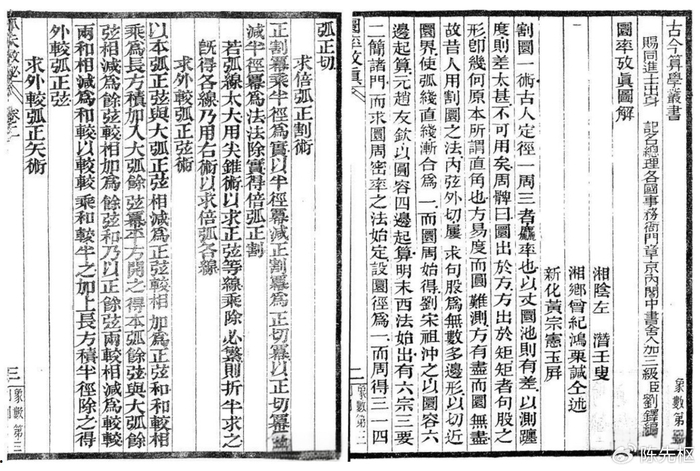 古今算學叢書
賜同進士出身 記名總理各國事務衙門章京內閣中書舍人加三級臣劉鐸編
圜率攷眞圖解
湘陰左 潛壬叟
湘鄉曾紀鴻栗諴仝述
新化黃宗憲玉屏
割圜一術古人定徑一周三者麤率也以丈圜池則有差以測躔
度則差太甚不可用矣周髀曰圜出於方方出於矩矩者句股之
形卽幾何原本所謂直角也方易度而圜難測方有盡而圜無盡
故昔人用割圜之法內弦外切屢求句股爲無數多邊形以切近
圜界使弧綫直綫漸合爲一而圜周始得劉宋祖沖之以圜容六
邊起算元趙友欽以圜容四邊起算明末西法始出有六宗三要
二簡諸門而求圜周密率之法始定設圜徑爲一而周得三一四
圜率攷眞
一
象數第三
弧正切
求倍弧正割術
正割冪乘半徑冪爲實以半徑冪減正割冪爲正切冪以正切冪
減半徑冪爲法法除實得倍弧正割
若弧線太大用尖錐術以求正弦等線乘除必繁則折半求之
旣得各線乃用右術以求倍弧各線
求外較弧正弦術
以本弧正弦與大弧正弦相減爲正弦較相加爲正弦和和較相
乘爲長方積加入大弧餘弦冪平方開之得本弧餘弦與大弧餘
弦相減爲餘弦較相加爲餘弦和乃以正餘弦兩較相減爲較較
兩和相減爲和較以較較乘和較半之加上長方積半徑除之得
外較弧正弦
求外較弧正矢術
三
象數第三
陈先枢